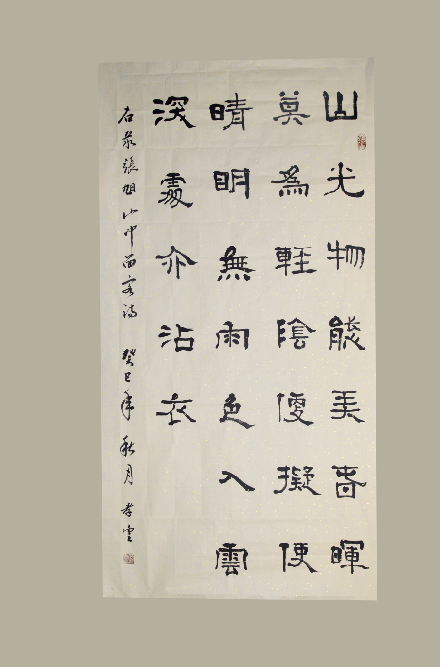 山光物能美春暉
莫為輕陰便擬便
晴明無雨色入雲
深處亦沾衣
右录張旭山中留客詩 癸巳年秋月 孝雲